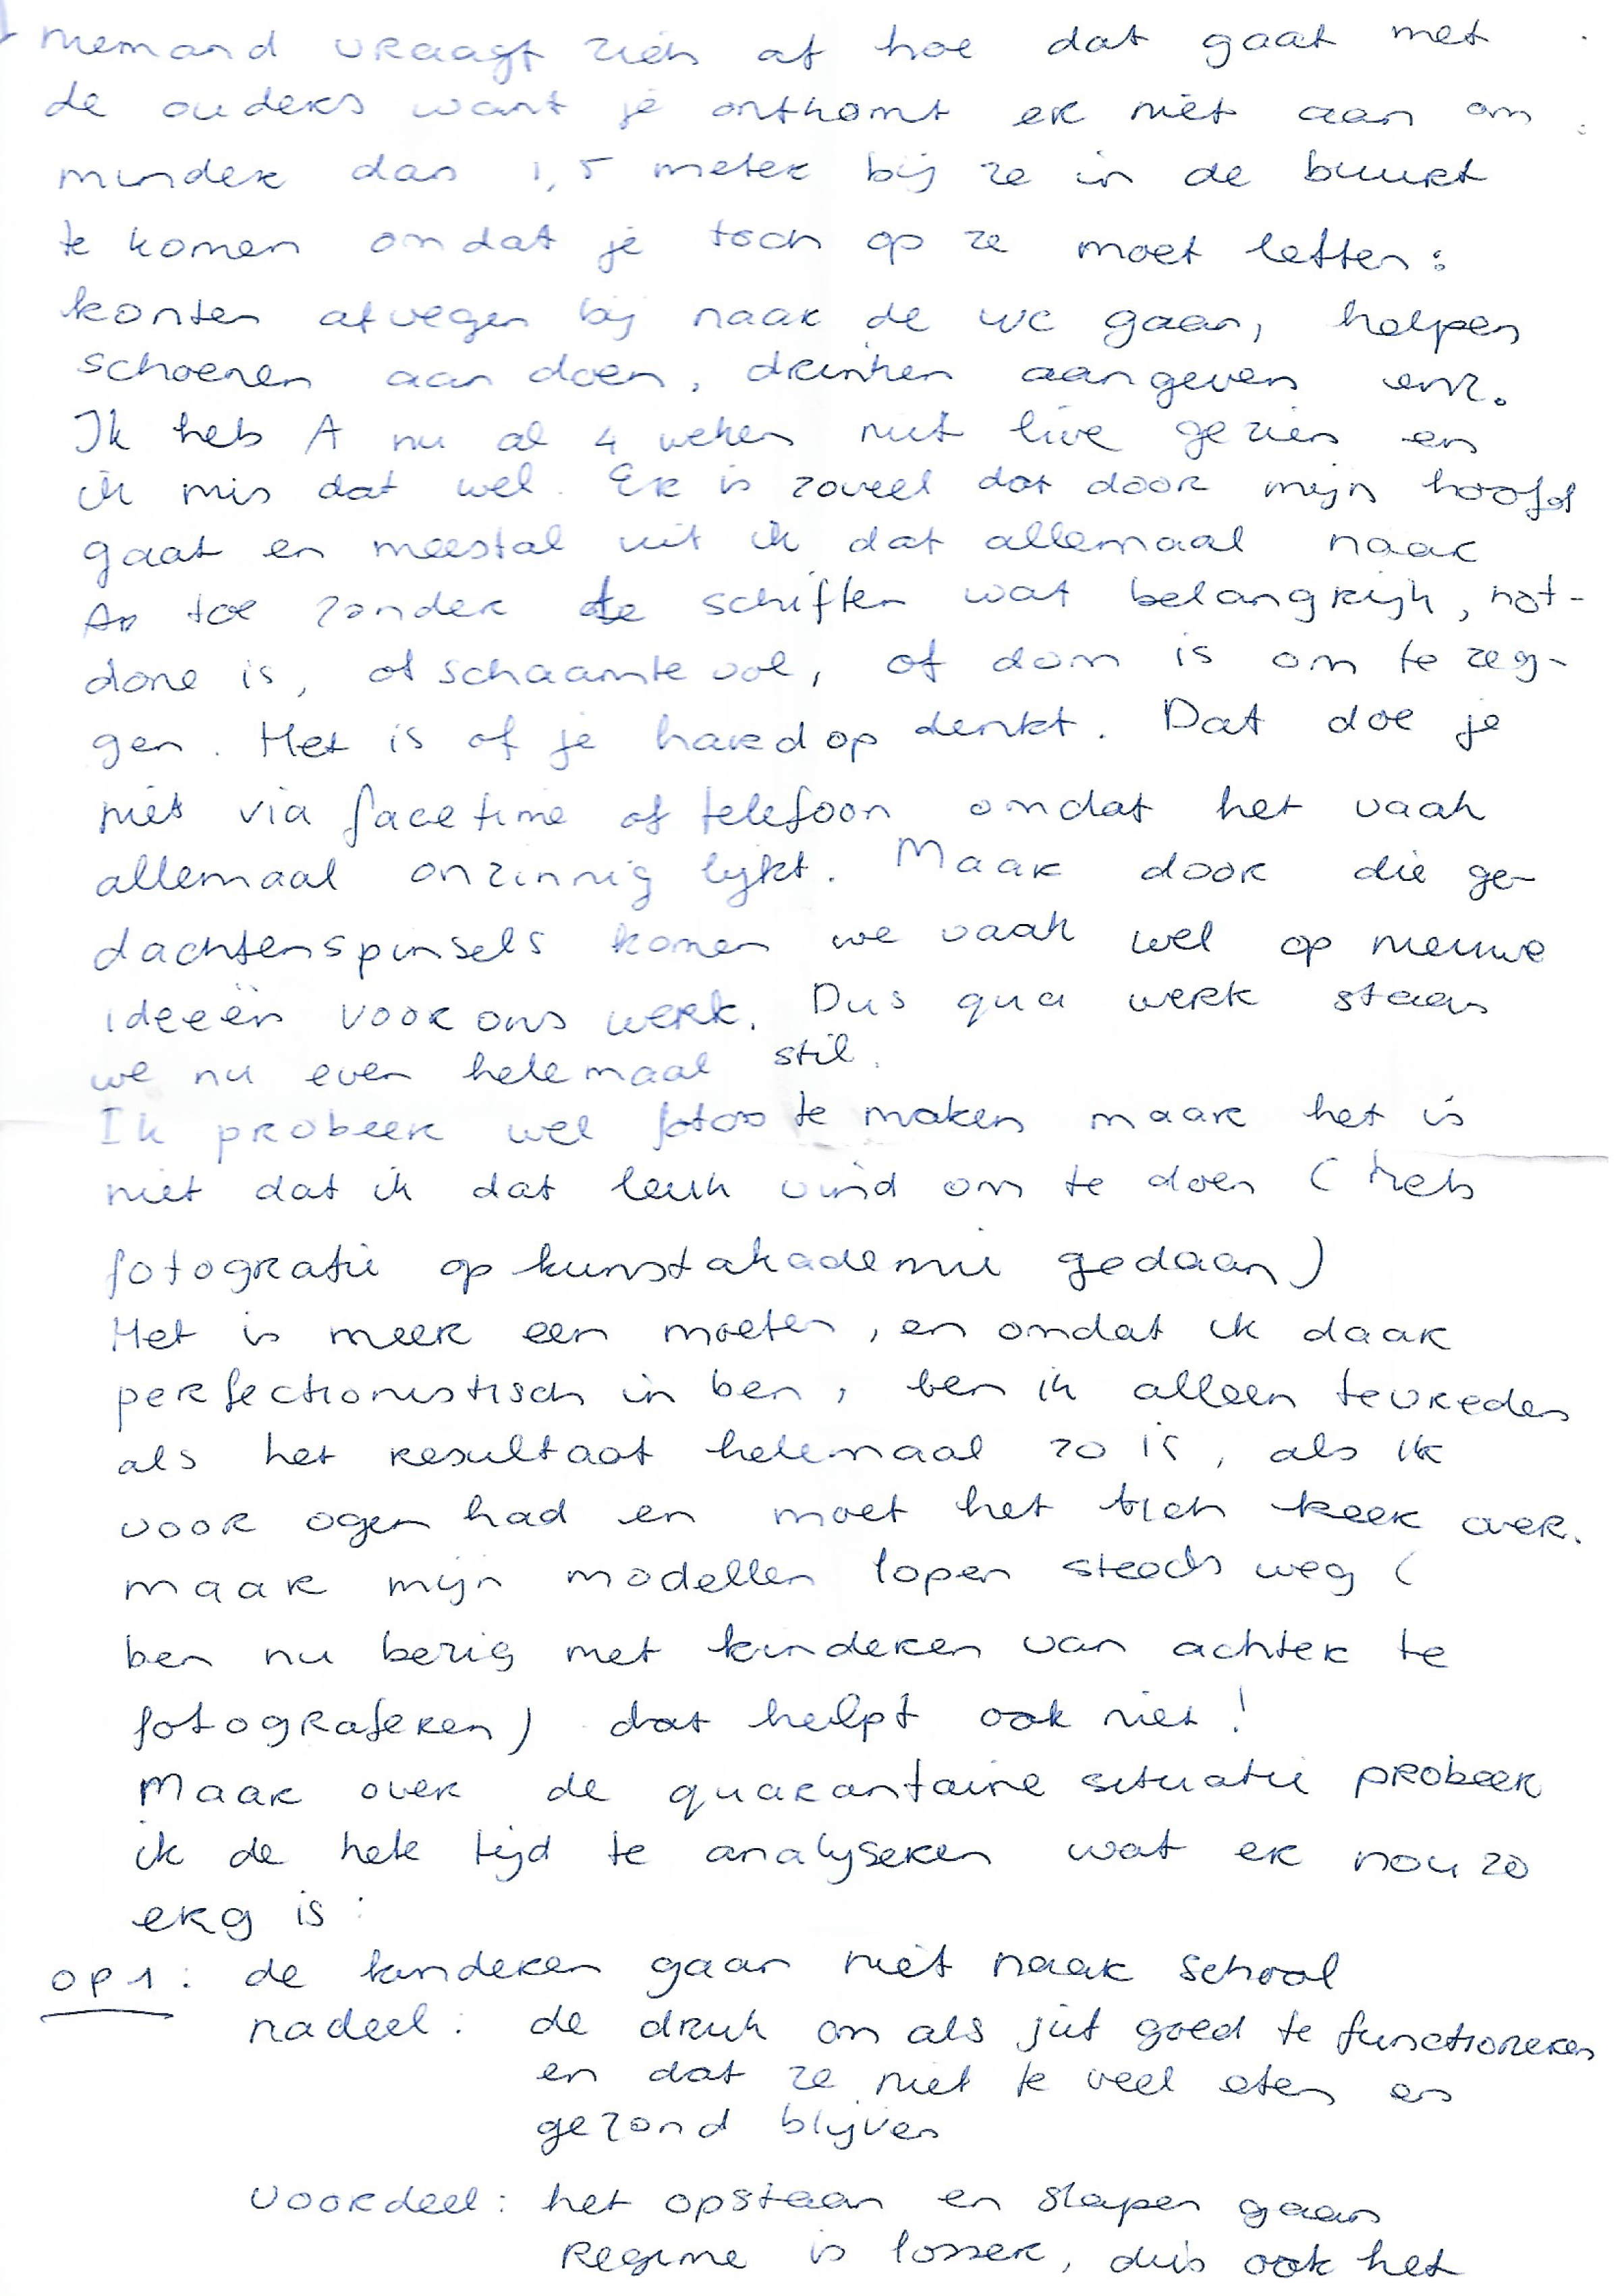 niemand vraagt zich af hoe dat gaat met
de ouders want je ontkomt er niet aan om
minder dan 1,5 meter bij ze in de buurt
te komen omdat je toch op ze moet letten:
konten afvegen bij naar de wc gaan, helpen
schoenen aan doen, drinken aangeven enz.
Ik heb A nu al 4 weken niet live gezien en
ik mis dat wel. Er is zoveel dat door mijn hoofd
gaat en meestal uit ik dat allemaal naar
A toe zonder te schiften wat belangrijk, not-
done is, of schaamtevol, of dom is om te zeg-
gen. Het is of je hardop denkt. Dat doe je
niet via facetime of telefoon omdat het vaak
allemaal onzinnig lijkt. Maar door die ge-
dachtenspinsels komen we vaak wel op nieuwe
ideeën voor ons werk. Dus qua werk staan
we nu even helemaal stil.
Ik probeer wel fotos te maken maar het is
niet dat ik dat leuk vind om te doen ( heb
fotografie op kunstakademie gedaan)
Het is meer een moeten, en omdat ik daar
perfectionistisch in ben, ben ik alleen tevreden
als het resultaat helemaal zo is, als ik
voor ogen had en moet het keer over.
maar mijn modellen lopen steeds weg (
ben nu bezig met kinderen van achter te
fotograferen) dat helpt ook niet!
Maar over de quarantaine situatie probeer
ik de hele tijd te analyseren wat er nou zo
erg is:
op 1: de kinderen gaan niet naar school
nadeel: de druk om als juf goed te functioneren
en dat ze niet te veel eten en
gezond blijven
voordeel: het opstaan en slapen gaan
regime is losser, dus ook het